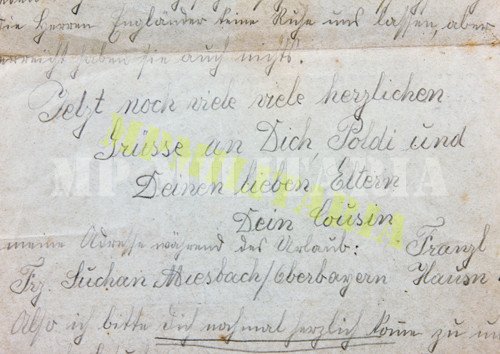 die Herren Engländer keine Ruhe uns lassen, aber
erreicht haben sie auch nichts.
Jetzt noch viele viele herzlichen
Grüsse an Dich, Poldi und
Deinen lieben Eltern
Dein Cousin
Franzl
meine Adresse während des Urlaub:
Frz. Suchan Miesbach/Oberbayern Hausn.
Also ich bitte dich nochmal herzlich komme zu
MP MILITARIA
MPMILITARIA